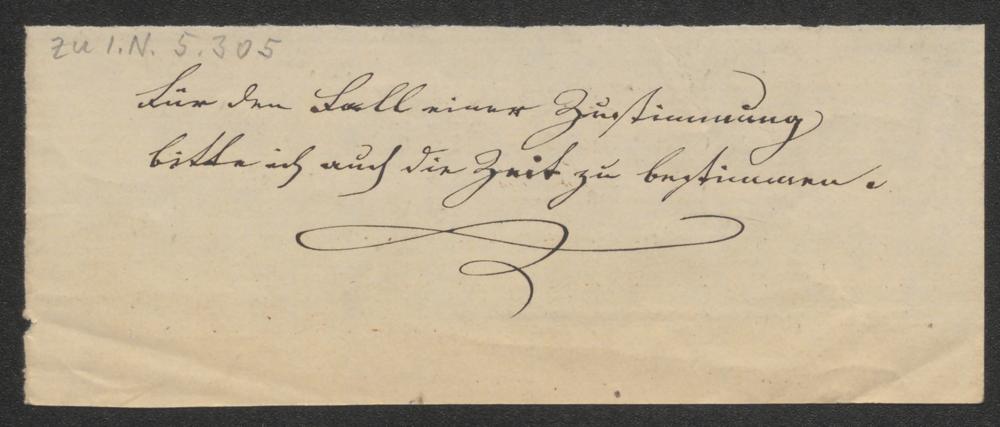 zu I.N. 5.305
Für den Fall einer Zustimmung
bitte ich auch die Zeit zu bestimmen.